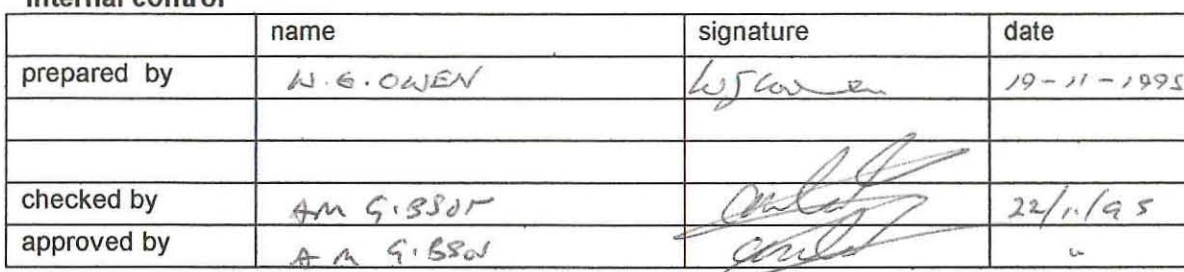 Internal control
name signature date
prepared by W. G. OWEN 19-11-1995
checked by AM GIBSON 22/11/95
approved by A M GIBSON "